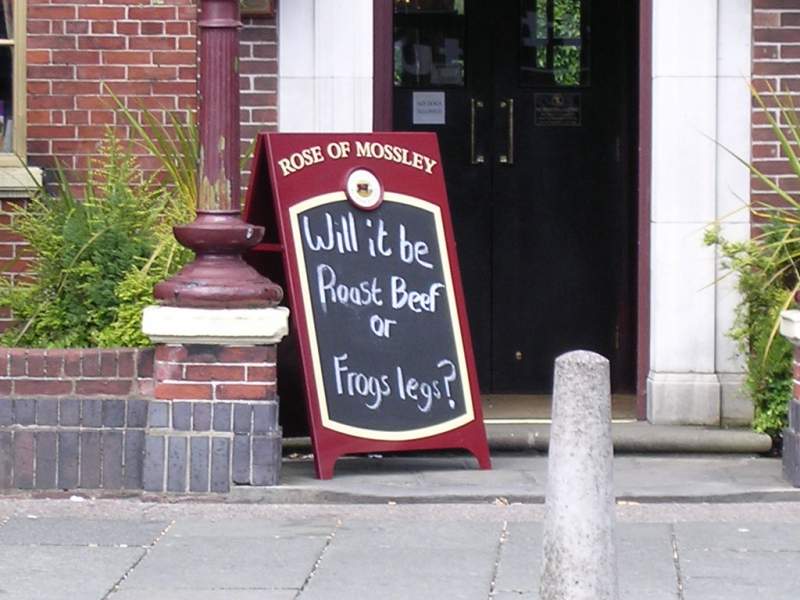 ROSE OF MOSSLEY
Will it be
Roast Beef
or
Frogs legs?